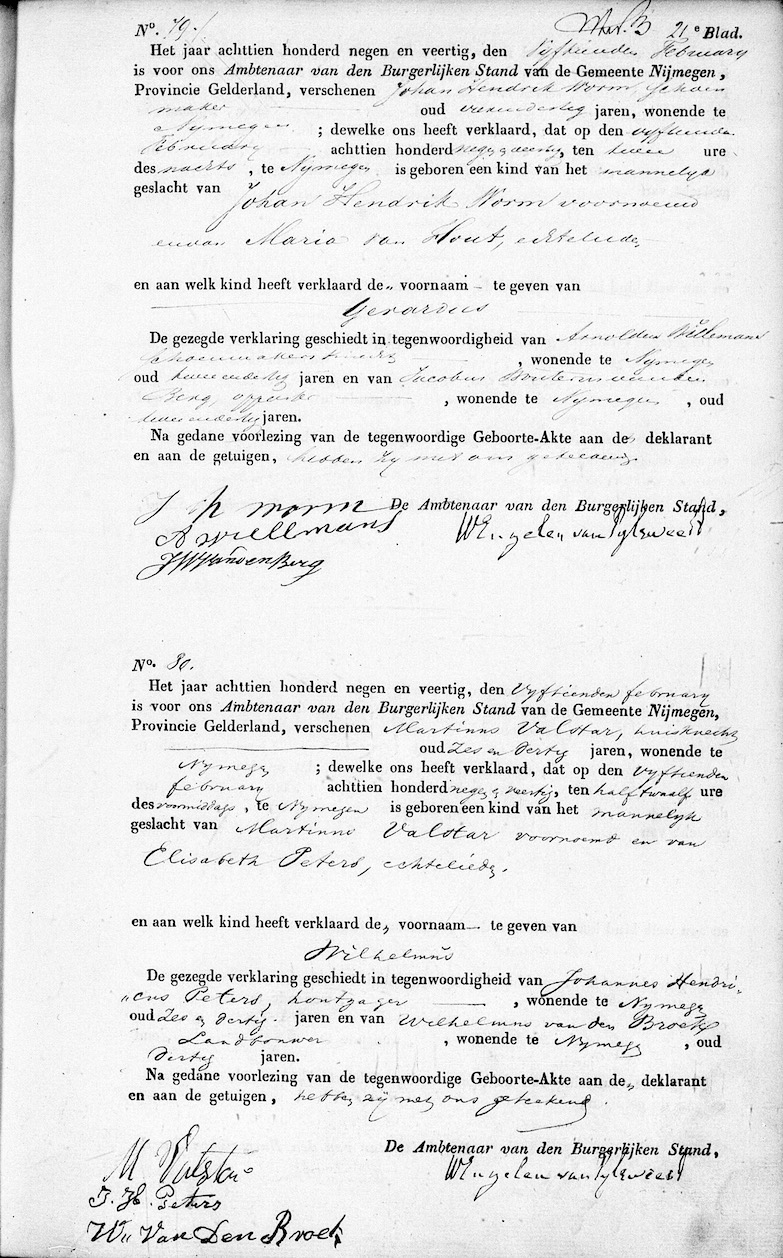 No. 79. 21e Blad.
Het jaar achttien honderd negen en veertig, den Vijftienden February
is voor ons Ambtenaar van den Burgerlijken Stand van de Gemeente Nijmegen,
Provincie Gelderland, verschenen Johan Hendrik Worm, schoen
maker oud jaren, wonende te
Nymegen ; dewelke ons heeft verklaard, dat op den vyftienden
February achttien honderd neg. & veertig, ten twee ure
des nachts, te Nymegen is geboren een kind van het mannelyk
geslacht van
Johan Hendrik Worm voornoemd
en van Maria van Hout, echtelieden
en aan welk kind heeft verklaard de „ voornaam — te geven van
Gerardus
De gezegde verklaring geschiedt in tegenwoordigheid van Arnoldus Willemans
schoenmakersknecht , wonende te Nymegen
oud jaren en van Jacobus van den
Berg, oppasser , wonende te Nymegen , oud
jaren.
Na gedane voorlezing van de tegenwoordige Geboorte-Akte aan de deklarant
en aan de getuigen, hebben zy met ons geteekend.
J H Worm De Ambtenaar van den Burgerlijken Stand,
A Willmans WEngelen van Pylsweert
JW van den Berg
No. 80.
Het jaar achttien honderd negen en veertig, den Vyftienden february
is voor ons Ambtenaar van den Burgerlijken Stand van de Gemeente Nijmegen,
Provincie Gelderland, verschenen Martinus Valstar, huisknecht
oud Zes en Dertig jaren, wonende te
Nymegen ; dewelke ons heeft verklaard, dat op den vyftienden
february achttien honderd neg. & veertig, ten half twaalf ure
des voormiddags, te Nymegen is geboren een kind van het mannelyk
geslacht van Martinus Valstar voornoemd en van
Elisabeth Peters, echtelieden.
en aan welk kind heeft verklaard de „ voornaam — te geven van
Wilhelmus
De gezegde verklaring geschiedt in tegenwoordigheid van Johannes Hendri-
„cus Peters, houtzager , wonende te Nymegen
oud Zes en Dertig jaren en van Wilhelmus van den Broek
Landbouwer , wonende te Nymegen , oud
Dertig jaren.
Na gedane voorlezing van de tegenwoordige Geboorte-Akte aan de „ deklarant
en aan de getuigen, hebben zij met ons geteekend.
De Ambtenaar van den Burgerlijken Stand,
M Valstar WEngelen van Pylsweert
J. H. Peters
Wm Van Den Broek